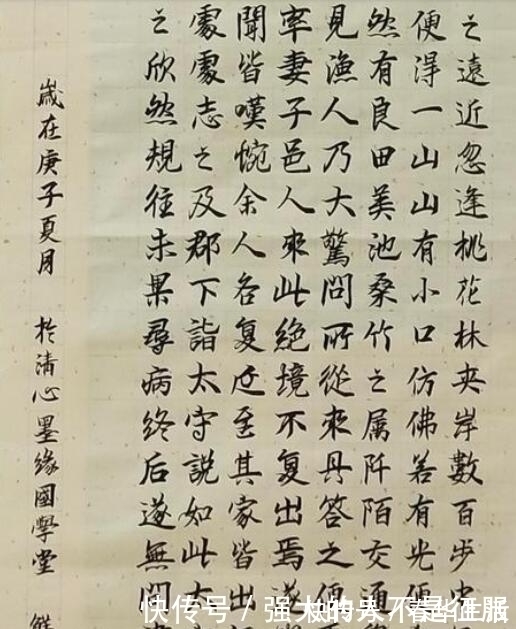 之遠近忽逢桃花林夹岸數百步
便淂一山山有小口仿佛若有光便
然有良田美池桑竹之属阡陌交通
見漁人乃大驚問所從來具答之便
率妻子邑人來此絶境不复出焉遂
聞皆嘆惋余人各复延至其家皆出
處處志之及郡下詣太守説如此太
之欣然規往未果尋病终后遂無問
歲在庚子夏月 於清心墨緣國學堂
快传号 / 强大的